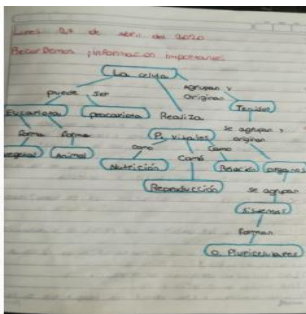 Lunes 27 de Abril de 2020
Recordemos información importante:
La celula
puede ser
Agrupan y
Originan
Eucariota
procariota
Realiza
Tejidos
forma
forma
P. vitales
se agrupan y
originan
vegetal
Animal
como
Como
Como
Nutrición
Relación
organos
Reproducción
se agrupan
Sistemas
Forman
O. Pluricelulares